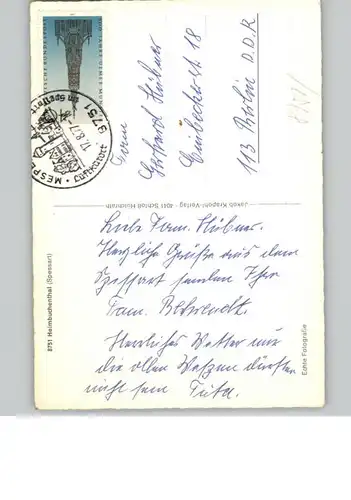 DEUTSCHE BUNDESPOST
MESPE
17.8.77
8751
im Spessart
Luftkurort
Herrn
Gerhard Hübner
Einbeckerst 18
113 Berlin D.D.R.
Jakob Krapohl-Verlag · 4041 Schloß Hülchrath
8751 Heimbuchenthal (Spessart)
Echte Fotografie
Liebe Fam. Hübner.
Herzliche Grüße aus dem
Spessart senden Ihre
Fam. Behrendt.
Herrliches Wetter nur
die ollen Wespen dürften
nicht sein